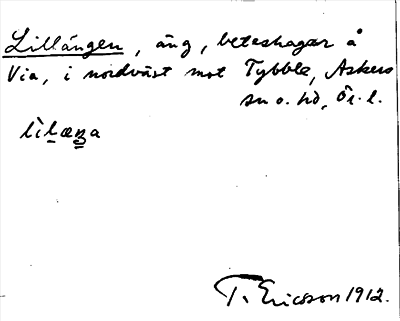 Lillängen, äng, beteshagar å
Via, i nordväst mot Tybble, Askers
sn o. hd, Ör. l.
lìlæŋa
T. Ericsson 1912.